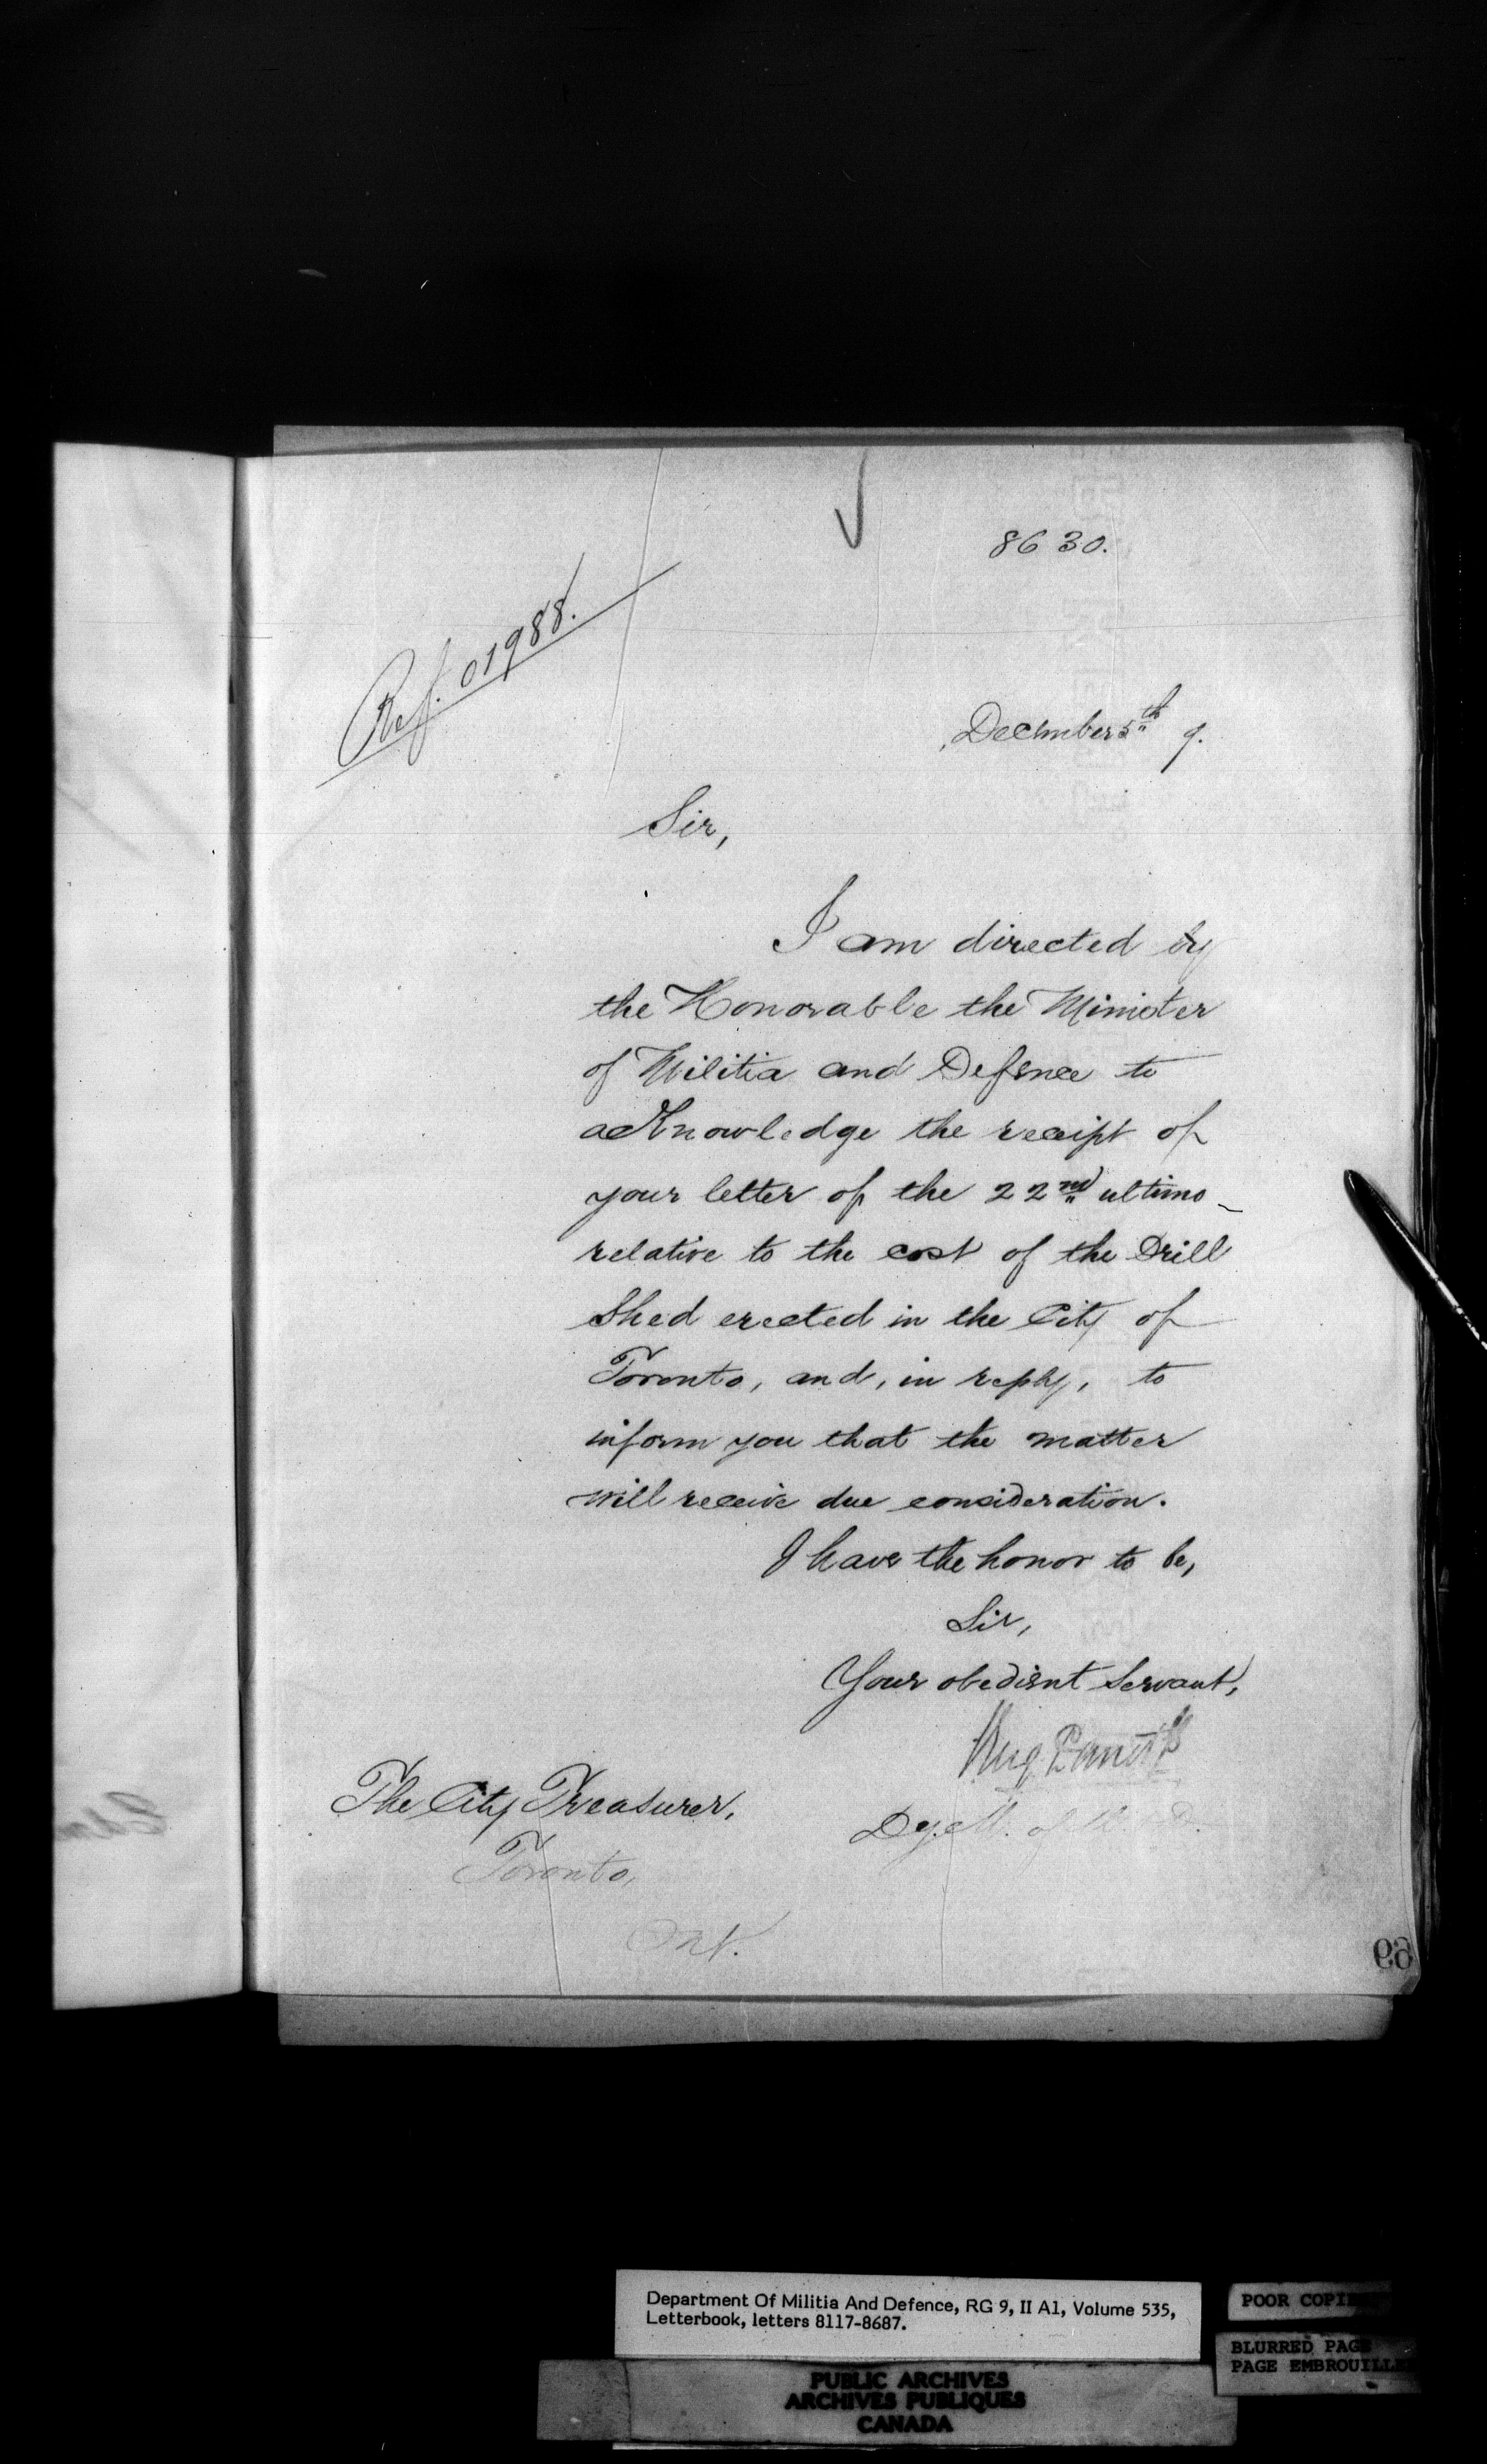 8630.
Ref. 01988.
December 5th 9.
Sir,
I am directed by
the Honorable the Minister
of Militia and Defence to
acknowledge the receipt of
your letter of the 22nd ultimo
relative to the cost of the Drill
Shed erected in the City of
Toronto, and, in reply, to
inform you that the matter
will receive due consideration.
I have the honor to be,
Sir,
Your obedient Servant,
Dy. M. of M. D.
The City Treasurer,
Toronto,
Ont.
Department Of Militia And Defence, RG 9, II A1, Volume 535,
Letterbook, letters 8117-8687.
POOR COPI
BLURRED PAGE
PAGE EMBROUILLE
PUBLIC ARCHIVES
ARCHIVES PUBLIQUES
CANADA